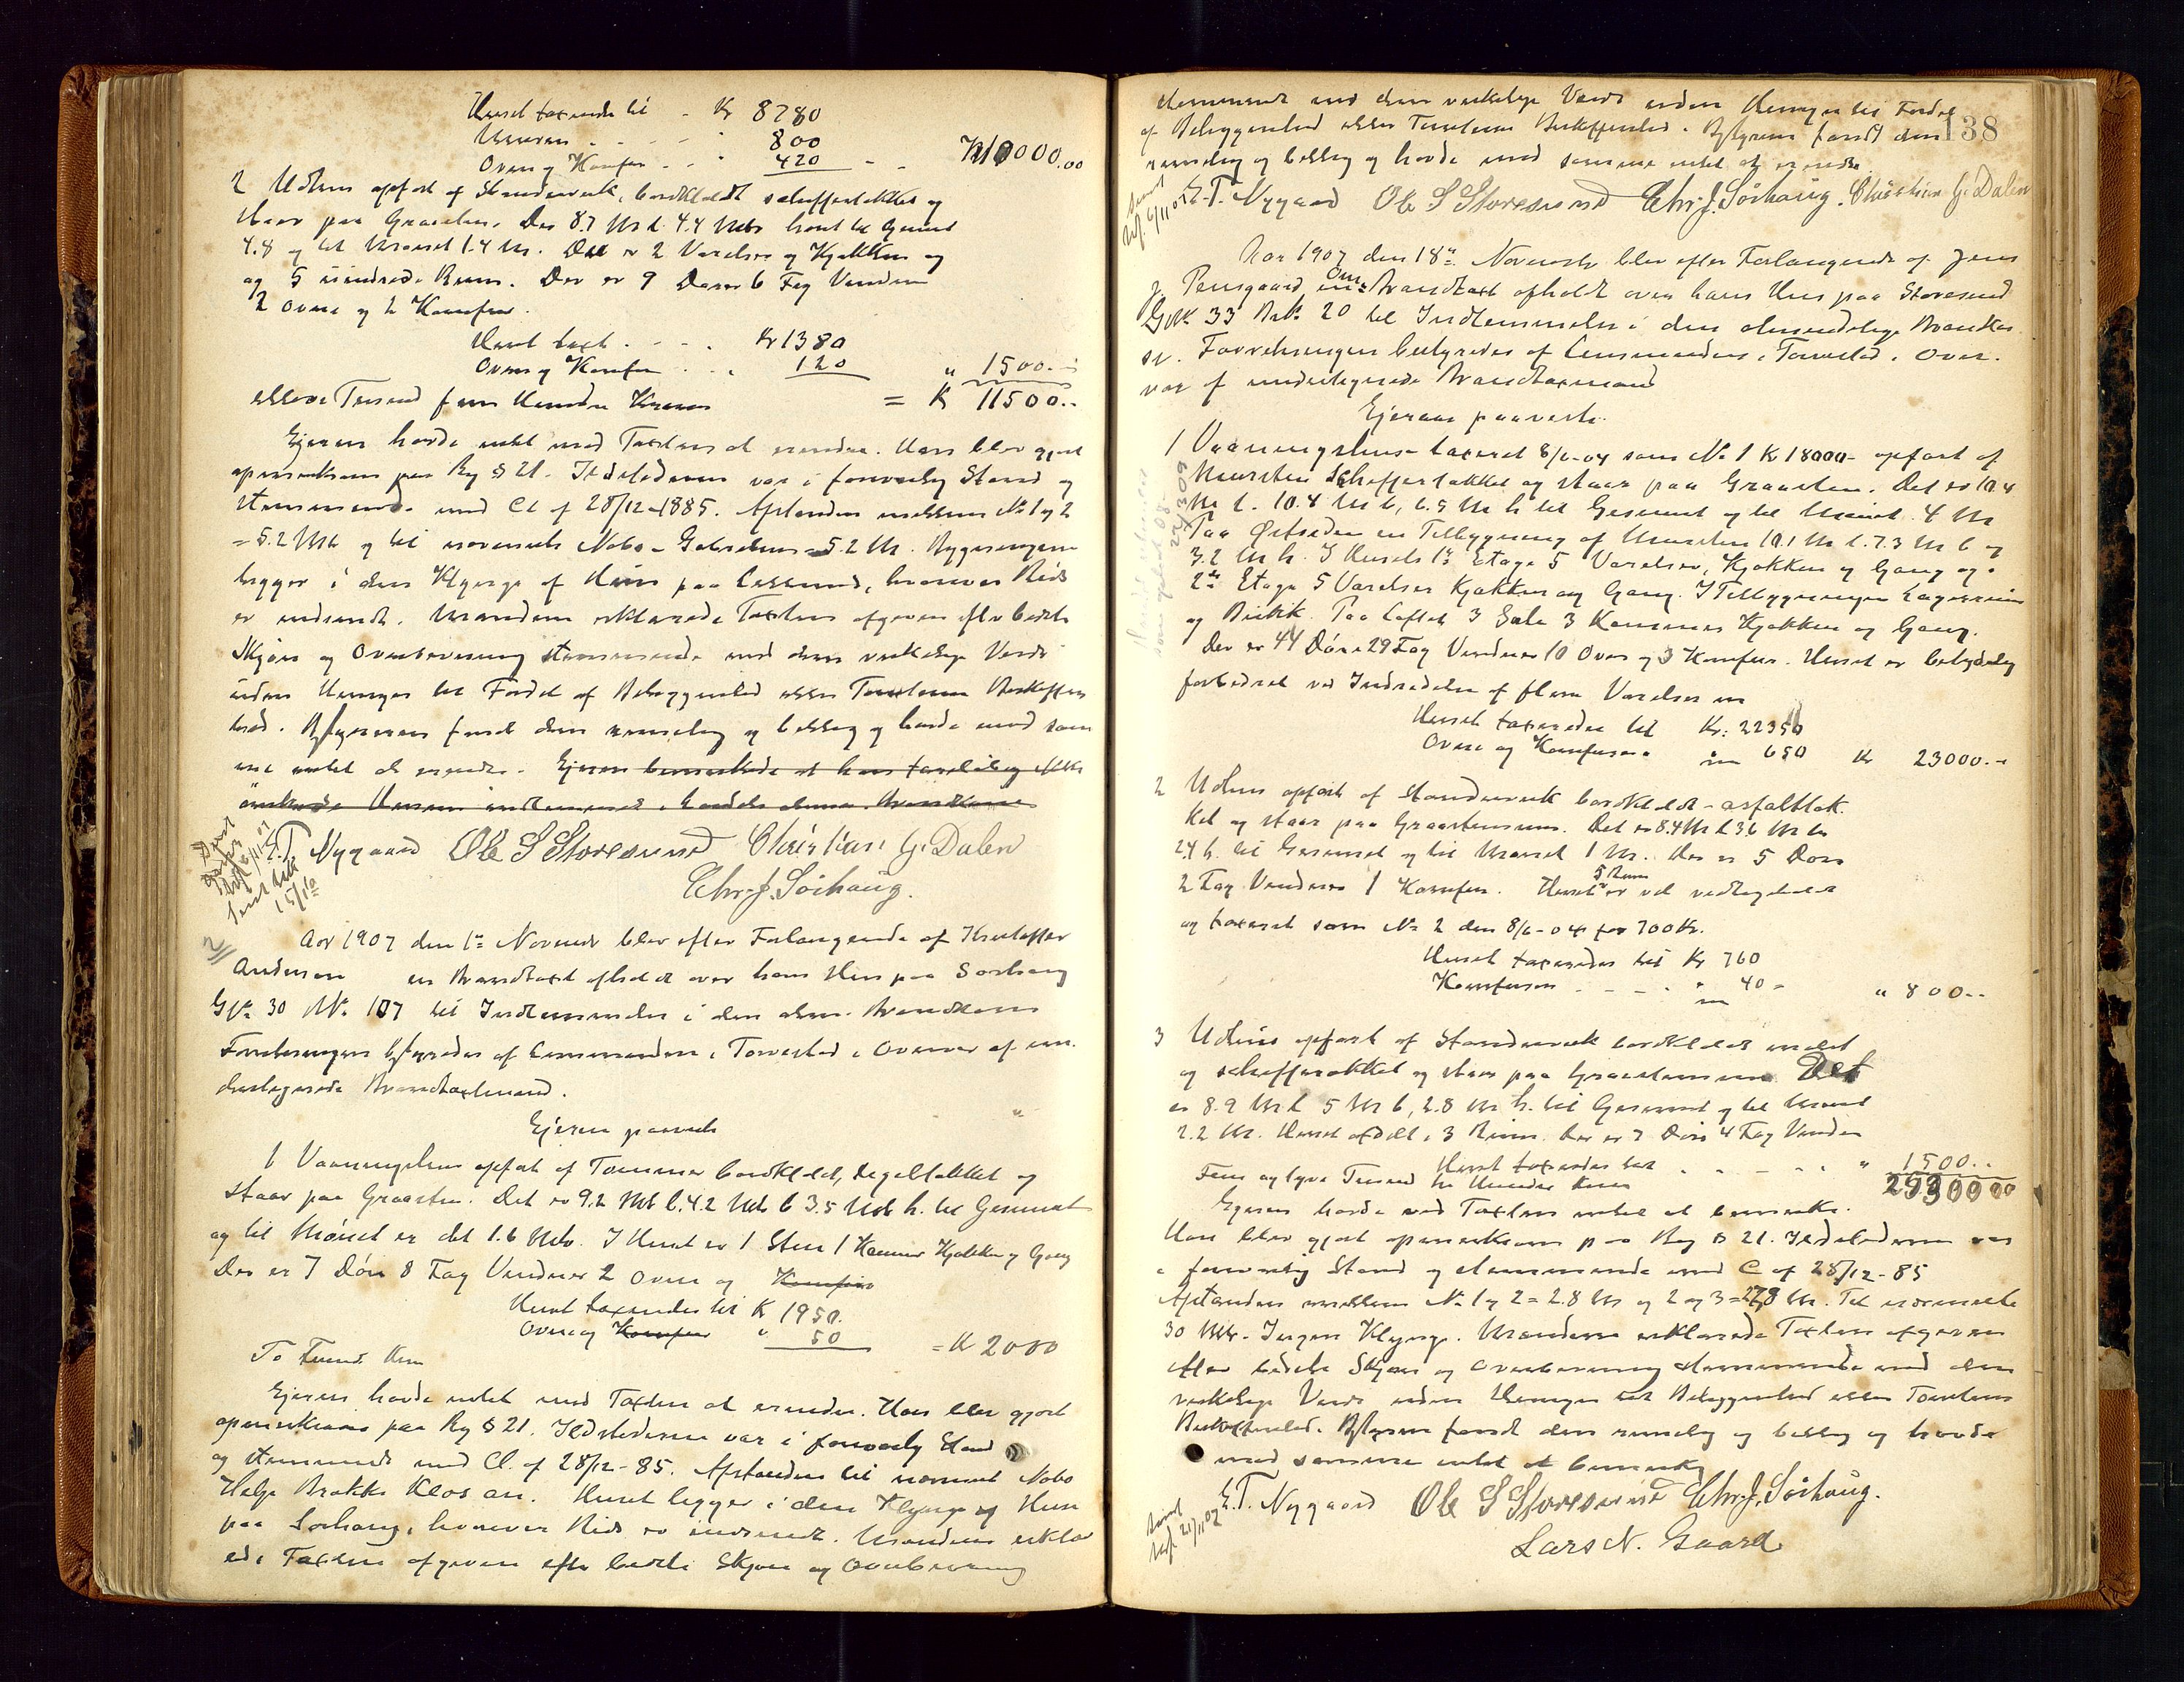 Huset taxeredes til - Kr 8780
Muren - - - " 800
Ovne og Komfur - - " 420 - - Kr 10000.00
2 Udhus opført af Standerverk, bordklædt skiffertækket og
staar paa Graasten. Der 8.7 Mr l. 4.4 Mtr bredt til Gesimst
4.8 og til Mønset 1.4 Mr. Det er 2 Værelser og Kjøkken og
og 5 uindrede Rum. Der er 9 Dører 6 Fag Vinduer
2 Ovne og 2 Komfur.
Huset taxt. - - - . Kr 1380
Ovne og Komfur . . . 120 " 1500.-
elleve Tusend fem Hundre Kroner = Kr 11500..
Ejeren havde intet mod Taxten at erindre. Han blev gjort
opmerksom paa Rg § 21. Ildstederne var i forsvarlig Stand og
stemmende med Cl af 28/12-1885. Afstanden mellem No 1 og 2
= 5.2 Mtr og til nærmeste Nabo - Gabrielsen = 5.2 Mr. Bygningerne
ligger i den Klynge af Huse paa hvorover Rids
er indsendt. Mændene erklærede Taxten afgiven efter bedste
Skjøn og Overbevisning stemmende med den verkelige Verdi
uden Hensyn til Fordel af Beliggenhed eller Tomtens Beskaffen
hed. Bestyreren fandt den rimelig og billig og havde mod sam
me intet at erindre. Ejeren bemerkede at han foreløbig ikke
ønskede Husene indlemmet i Brandkasse
E.T. Nygaard Ole S Storesund Christian G. Dalen
Chr. J. Sørhaug.
Aar 1907 den 1ste Novembr blev efter Forlangende af Kristoffer
Andersen en Brandtaxt afholdt over hans Hus paa Sørhaug
GNo 30 BNo 107 til Indlemmelse i den alm. Brandkasse
Forretningen bestyredes af Lensmanden i Torvestad i Overvær af un-
dertegnede Brandtaxtmænd.
Ejeren paaviste
1 Vaaningshus opført af Tømmer bordklædt, teglstækket og
staar paa Graasten. Det er 9.2 Mtr l. 4.2 Mtr b 3.5 Mtr h. til Gesimset
og til Mønset er det 1.6 Mtr. I Huset er 1 Stue 1 Kammer Kjøkken og Gang
Der er 7 Døre 8 Fag Vinduer 2 Ovne og Komfur
Huset taxeredes til K 1950.
Ovne og Komfur " 50 = K 2000
To Tusind Kr
Ejeren havde intet mod Taxten at erindre. Han blev gjort
opmerksom paa Rg § 21. Ildstederne var i forsvarlig Stand
og stemmende med Cl. af 28/12-85. Afstanden til nærmeste Nabo
Helge Brække Klos an. Huset ligger i den Klynge af Huse
paa Sørhaug, hvorover Rids er indsendt. Mændene erklær
ede Taxten afgiven efter bedste Skjøn og Overbevisning
138
stemmende med den verkelige Verdi uden Hensyn til Fordel
af Beliggenhed eller Tomtens Beskaffenhed. Bestyreren fandt den
rimelig og billig og havde mod samme intet at erindre
E.T. Nygaard Ole S Storesund Chr. J. Sørhaug. Christian G. Dalen
Aar 1907 den 18de Novembr blev efter Forlangende af Jens
J. Rensgaard Om Brandtaxt afholdt over hans Hus paa Storesund
GNo 33 BNo 20 til Indlemmelse i den almindelige Brandkas
se. Forretningen bestyredes af Lensmanden i Torvestad i Over-
vær af undertegnede Brandtaxmænd
Ejeren paaviste.
1 Vaaningshus taxeret 8/6-04 som No 1 Kr 18000- opført af
Mursten Skiffertækket og staar paa Graasten. Det er 10.4
Mr l. 10.4 Mr b, 6.5 Mr h til Gesimst og til Mønset 4 Mr
Paa Østsiden en Tilbygning af Mursten 10.1 Mr l. 7.3 Mr b og
3.2 Mr h. I Husets 1ste Etage 5 Værelser, Kjøkken og Gang og
2den Etage 5 Værelser Kjøkken og Gang. I Tilbygningen Lagerrum
og Butik. Paa Loftet 3 Sale 3 Kammer Kjøkken og Gang.
Der er 44 Døre 29 Fag Vinduer 10 Ovne og 3 Komfur. Huset er betydelig
forbedret ved Indredelse af flere Værelser m
Huset taxeredes til Kr: 22350
Ovne og Komfurer " 650 Kr 23000.-
2 Udhus opført af Standerverk bordklædt - asfalttæk
ket og staar paa Graastensmur. Det er 8.4 Mr l 3.6 Mr b
2.4 h. til Gesimset og til Mønset 1 Mr. Der er 5 Døre
2 Fag Vinduer 1 Komfur. Huset 5 Rum er vel vedligeholdt
og taxeret som No 2 den 8/6-04 for 700 Kr.
Huset taxeredes til Kr 760
Komfuren - - - . " 40 - " 800..
3 Udhus opført af Standerverk bordklædt malet
og skiffertækket og staar paa Graastensmur Det
er 8.9 Mr l 5 Mr b, 2.8 Mr h. til Gesimset og til Mønset
2.2 Mr. Huset afdelt i 3 Rum. Der er 7 Døre 4 Fag Vinduer
Huset taxeredes til . . - . . " 1500..
Fem og tyve Tusend tre Hundre Kroner 25300 00
Ejeren havde ved Taxten intet at bemerke.
Han blev gjort opmerksom paa Rg § 21. Ildstederne var
i forsvarlig Stand og stemmende med C af 28/12-85
Afstanden mellem No 1 og 2 = 2.8 Mr og 2 og 3 = 27.8 Mr. Til nærmeste
30 Mtr. Ingen Klynge. Mændene erklærede Taxten afgiven
efter bedste Skjøn og Overbevisning stemmende med den
verkelige Verdi uden Hensyn til Beliggenhed eller Tomtens
Beskaffenhed. Bestyreren fandt den rimelig og billig og havde
mod samme intet at bemerke
E.T. Nygaard Ole S Storesund Chr. J. Sørhaug.
Lars N. Gaard